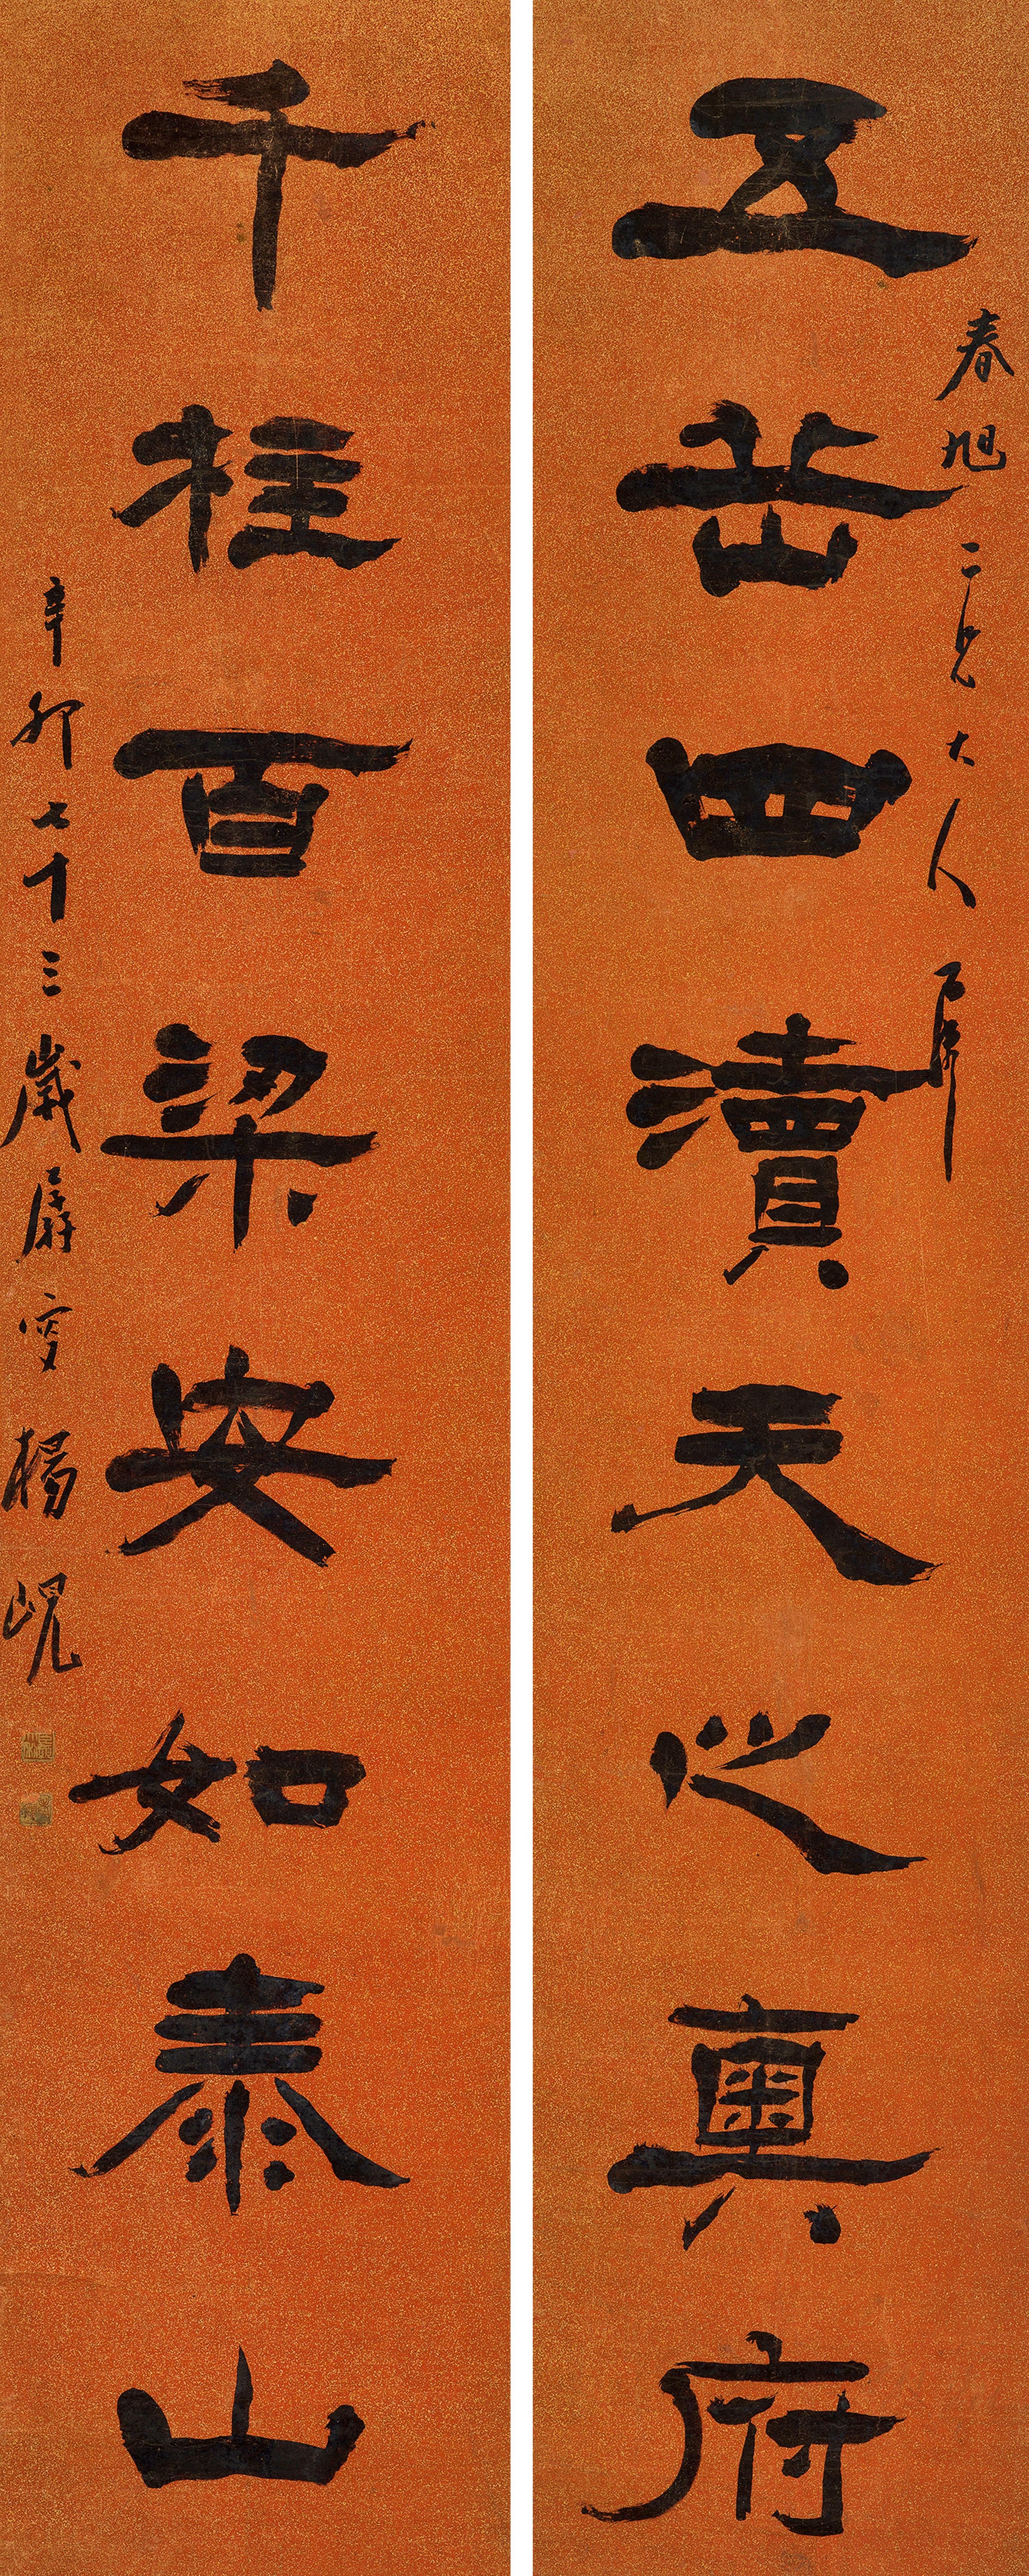 春旭二兄大人属
五岳四瀆天之奧府
千柱百梁安如泰山
辛卯七十三歲孱叟楊峴